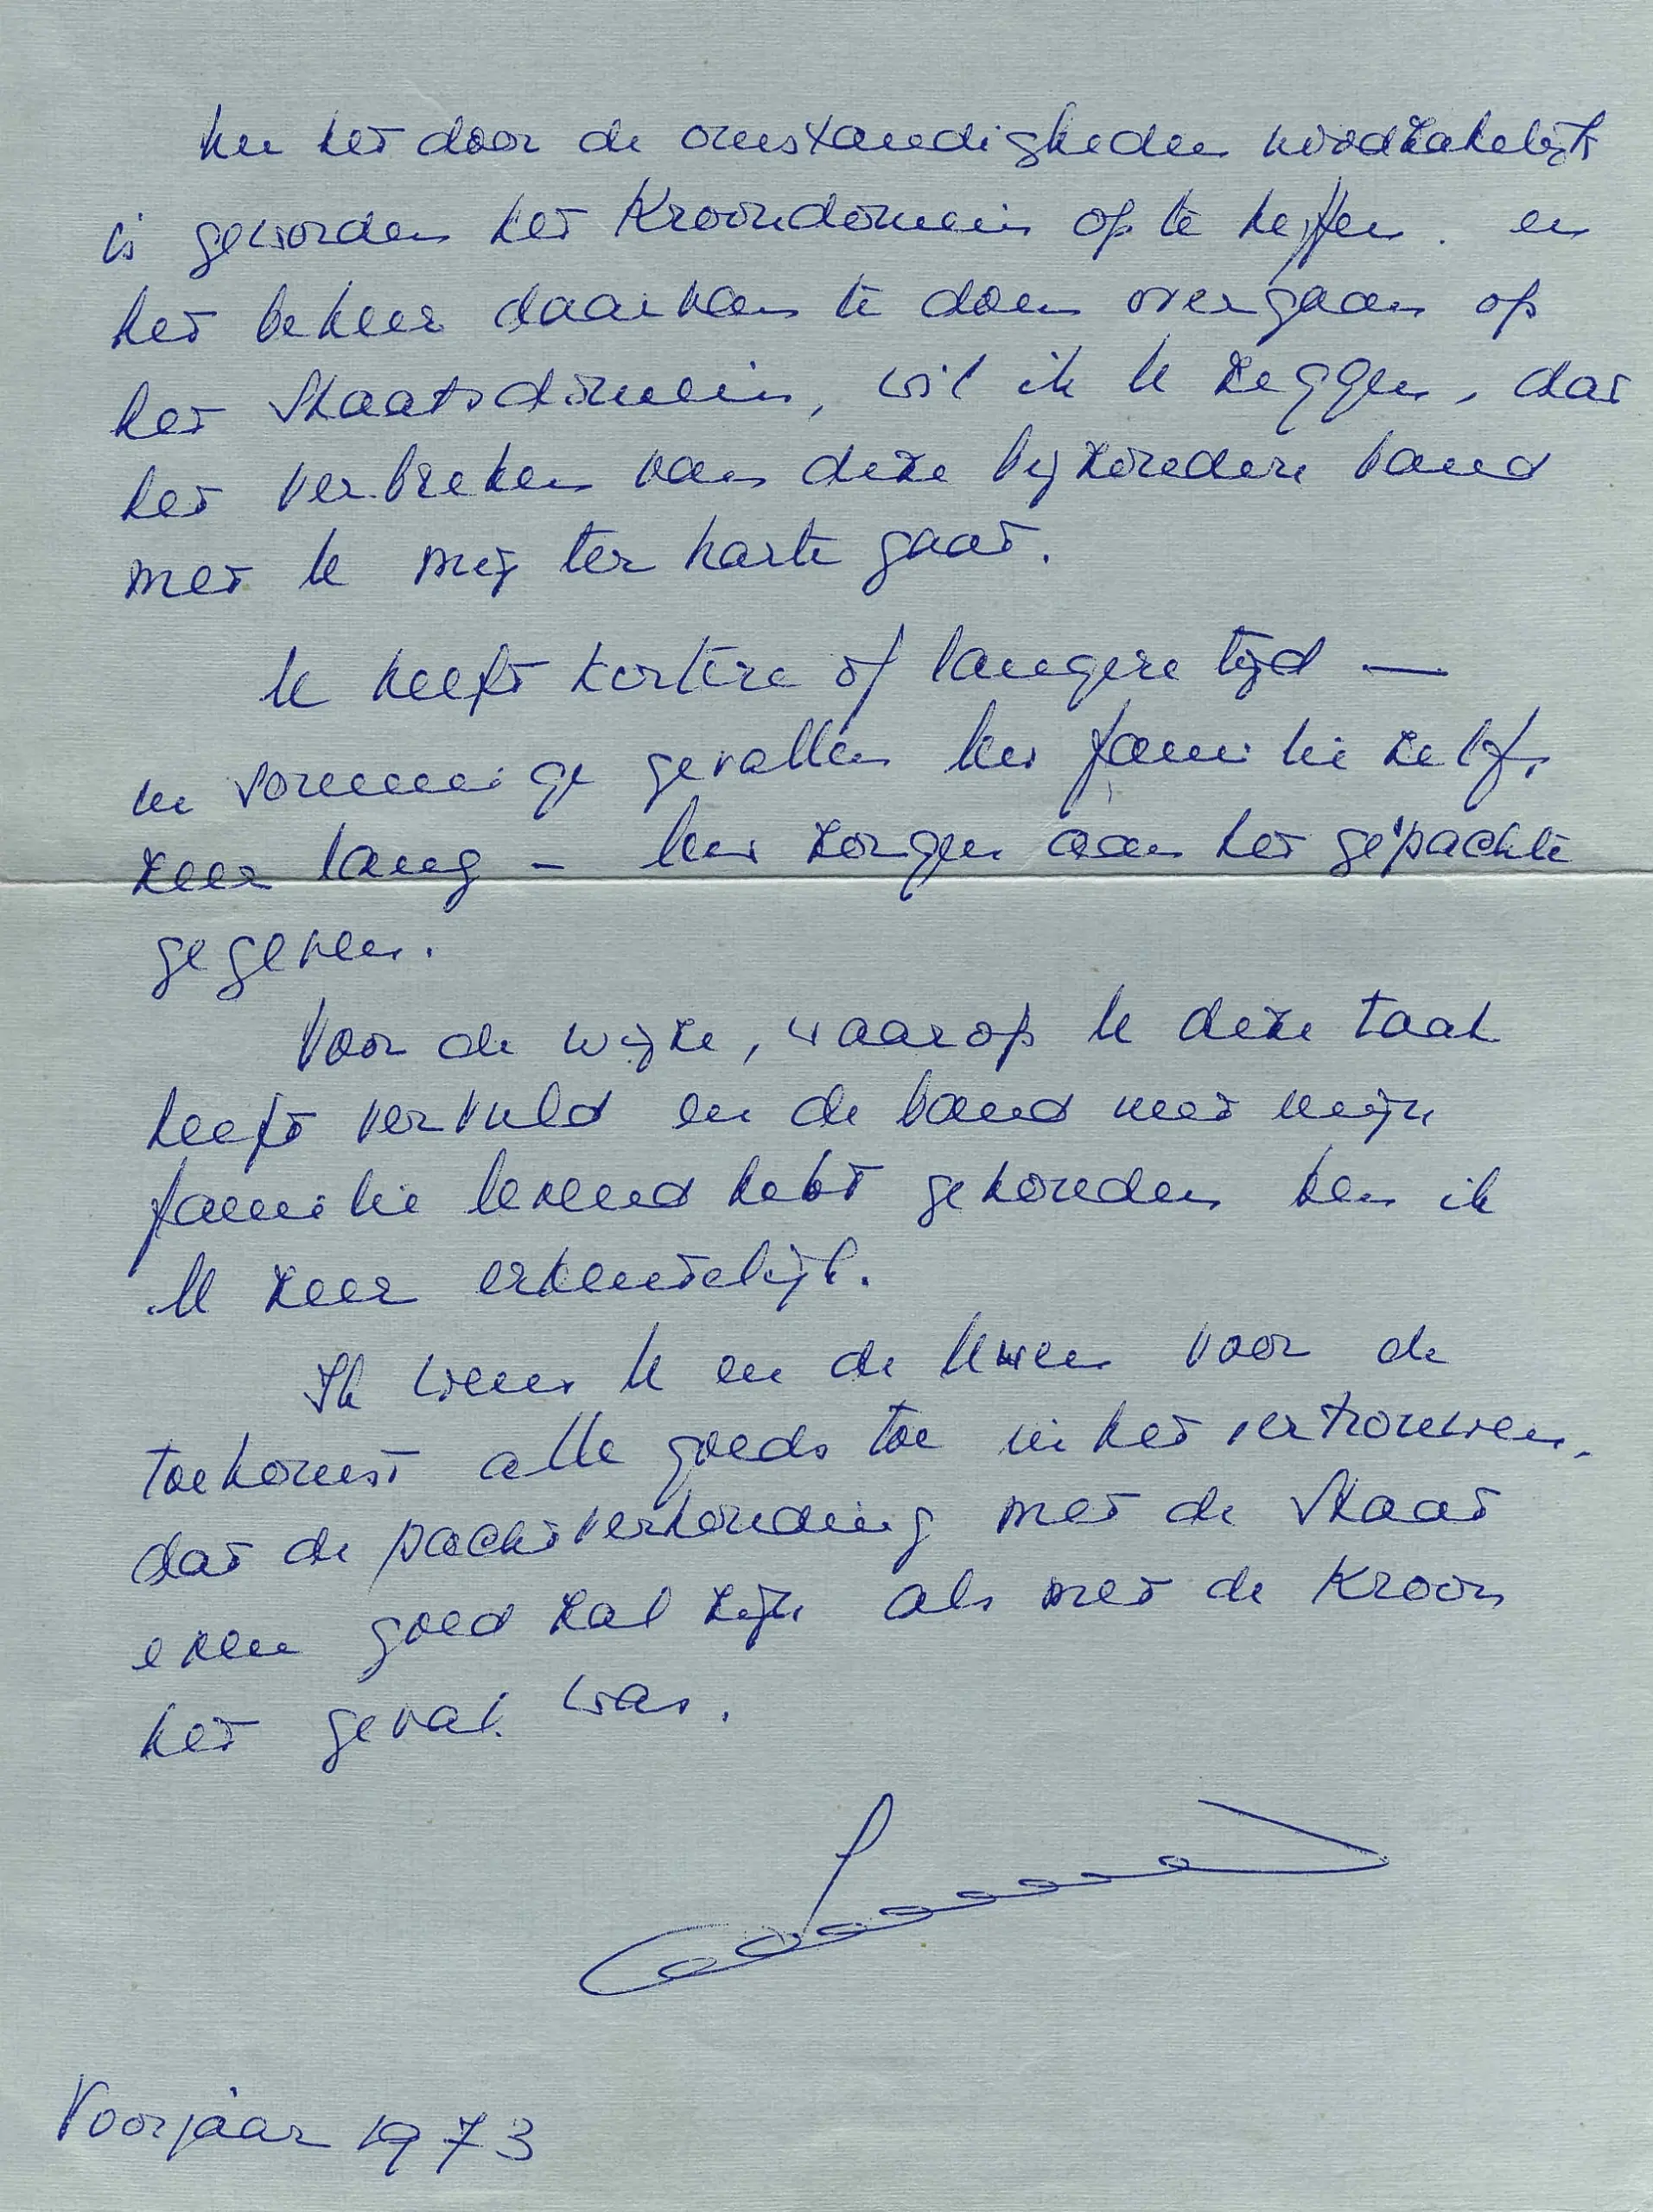 Nu het door de omstandigheden noodzakelijk
is geworden het Kroondomein op te heffen. en
het beheer daarvan te doen overgaan op
het Staatsdomein, wil ik U zeggen, dat
het verbreken van deze bijzondere band
met U mij ter harte gaat.
U heeft kortere of langere tijd —
in sommige gevallen Uw familie zelfs
zeer lang – Uw zorgen aan het gepachte
gegeven.
Voor de wijze, waarop U deze taak
heeft vervuld en de band met mijn
familie levend hebt gehouden ben ik
U zeer erkentelijk.
Ik wens U en de Uwen voor de
toekomst alle goeds toe in het vertrouwen,
dat de pachtverhouding met de Staat
even goed zal zijn als met de Kroon
het geval was.
Voorjaar 1973